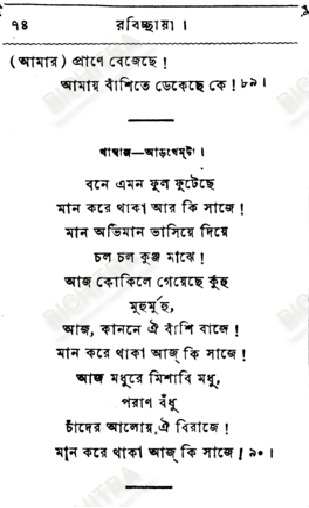 ৭৪ রবিচ্ছায়া ।
( আমার ) প্রাণে বেজেছে !
আমায় বাঁশিতে ডেকেছে কে ! ৮৯ ।
খাম্বাজ—আড়খেম্‌টা ।
বনে এমন ফুল ফুটেছে
মান করে থাকা আর কি সাজে !
মান অভিমান ভাসিয়ে দিয়ে
চল চল কুঞ্জ মাঝে !
আজ কোকিলে গেয়েছে কুঁহু
মুহুর্মুহু,
আজ, কাননে ঐ বাঁশি বাজে !
মান করে থাকা আজ্ কি সাজে !
আজ মধুরে মিশাবি মধু,
পরাণ বঁধু
চাঁদের আলোয় ঐ বিরাজে !
মান করে থাকা আজ্ কি সাজে ! ৯০ ।
BICHITRA